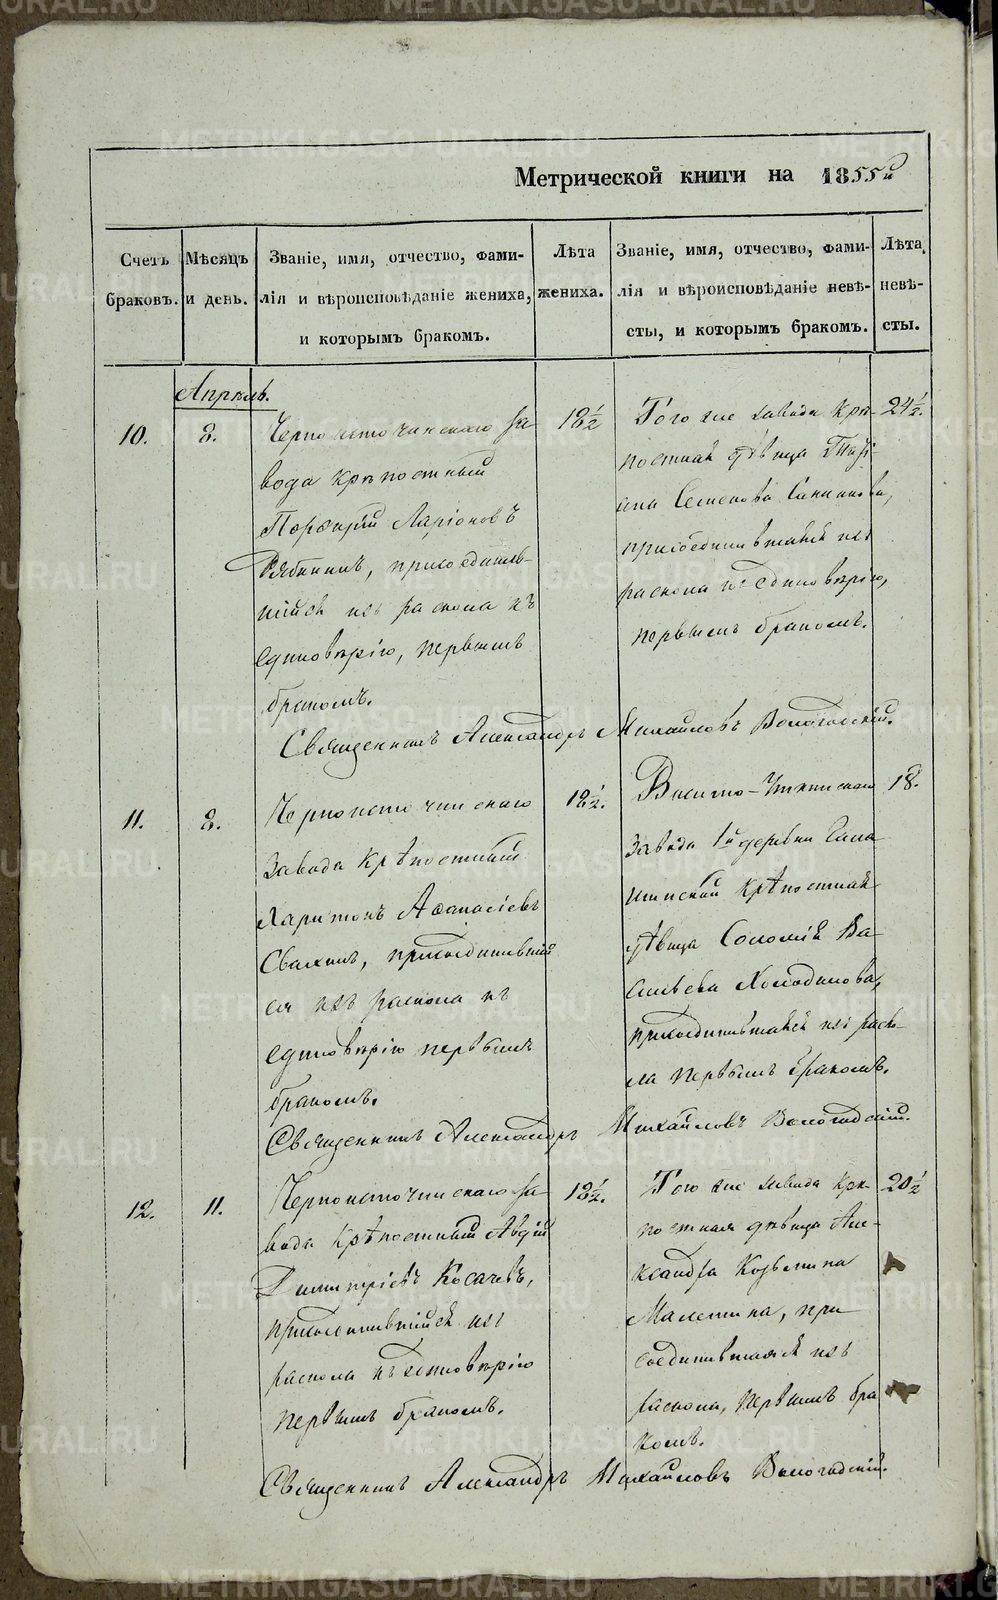 Метрической книги на 1855й
Счетъ браковъ.
Мѣсяцъ и день.
Званіе, имя, отчество, фами-
лія и вѣроисповѣданіе жениха,
и которымъ бракомъ.
Лѣта
жениха.
Званіе, имя, отчество, фами-
лія и вѣроисповѣданіе невѣ-
сты, и которымъ бракомъ.
Лѣта
невѣ-
сты.
Апрѣль.
10.
8.
Черноисточинскаго за
вода крѣпостный
Порфирій Ларіоновъ
Рябининъ, присоедини-
шійся изъ раскола къ
единовѣрію, первымъ
бракомъ.
18½
Того же завода крѣ-
постная дѣвица Таті-
яна Семенова
присоединившаяся изъ
раскола къ единовѣрію,
первымъ бракомъ.
24½.
Священникъ Александръ Михайловъ Вологодскій.
11.
8.
Черноисточинскаго
завода крѣпостный
Харитонъ Аѳанасіевъ
присоединившій
ся изъ раскола къ
единовѣрію первымъ
бракомъ.
18½.
Висимо-Уткинскаго
завода 1й деревни Гала
шинской крѣпостная
дѣвица Соломія Ва-
сильева Холодилова,
присоединившаяся изъ раско-
ла первымъ бракомъ.
18.
Священникъ Александръ Михайловъ Вологодскій.
12.
11.
Черноисточинскаго за-
вода крѣпостный Авдій
Димитріевъ Косачевъ,
присоединившійся изъ
раскола къ единовѣрію
первымъ бракомъ.
18½.
Того же завода крѣ-
постная дѣвица Але-
ксандра Козьмина
при
соединившаяся изъ
раскола, первымъ бра
комъ.
20½
Священникъ Александръ Михайловъ Вологодскій.
METRIKI.GASO-URAL.RU